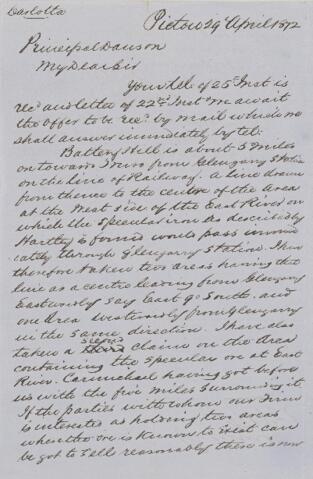 Carlotta
Pictou 29 April 1872
Principal Dawson
My Dear Sir
Your tel. of 25th Inst is
recd and letter of 22nd Inst we await
the offer to be recd by mail which we
shall answer immediately by tel.
Battery Hill is about 5 Miles
on towards Truro from Glengary Station
on the line of Railway. A line drawn
from thence to the centre of the Area
at the West side of the East River on
which the Specular iron as described by
Hartley is found would pass immedi
ately through Glengarry Station. I have
therefore taken two areas having that
line as a centre leading from Glengarry
Eastwardly say East 90 South. and
one Area westwardly from Glengarry
in the same direction. I have also
taken a second claim on the Area
containing the Specular ore at East
River. Carmichael having got before
us with the five Miles Surrounding it
If the parties with whom our Firm
is interested as holding two areas
where the ore is known to Exist can
be got to Sell reasonably there is now